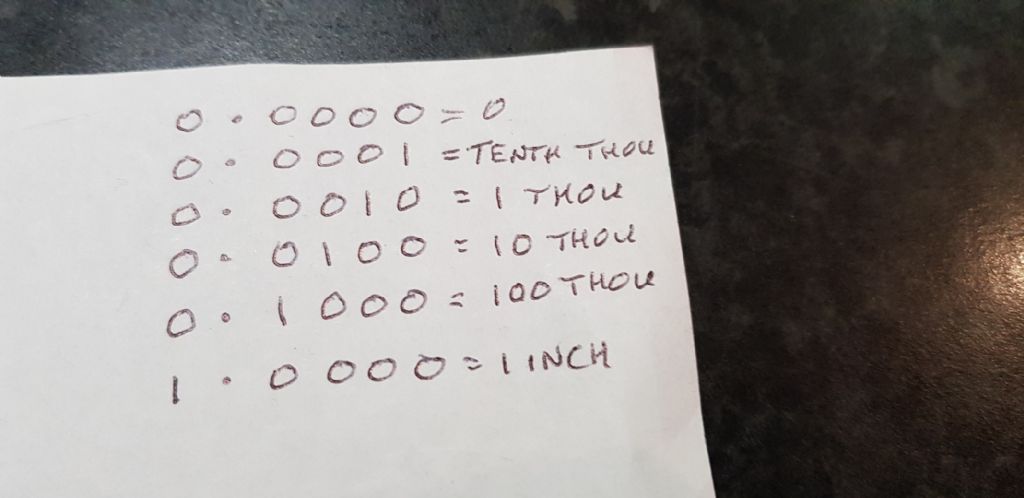 0.0000=0
0.0001=TENTH THOU
0.0010=1 THOU
0.0100=10 THOU
0.1000=100 THOU
1.0000=1 INCH